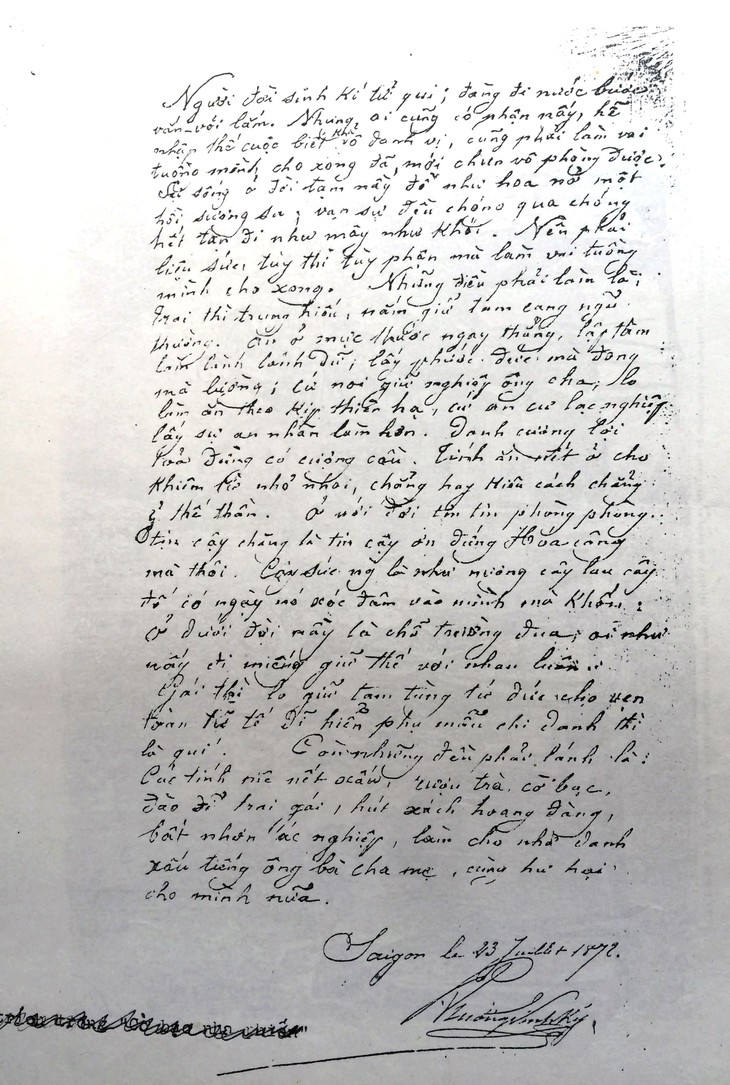 Người đời sinh kí tử qui; đàng đi nước bước
vắn-vỏi lắm. Nhưng ai cũng có phận nấy, hễ
nhập thế cuộc bất khả vô danh vị, cũng phải làm vai
tuồng mình cho xong đã, mới chun vô phòng được.
Sự sống ở đời tạm nầy đỗ như hoa nở một
hồi sương sa; vạn sự đều chóng qua chóng
hết tan đi như mây như khói. Nên phải
liệu sức, tùy thì tùy phận mà làm vai tuồng
mình cho xong. Những điều phải làm là:
trai thì trung hiếu, nắm giữ tam cang ngũ
thường. Ăn ở mực thước ngay thẳng, lập tâm
làm lành lánh dữ; lấy phước đức mà đong
mà lường; cứ noi giữ nghiệp ông cha; lo
làm ăn theo kịp thiên hạ, cứ an cư lạc nghiệp
lấy sự an nhàn làm hơn. Danh cương lợi
toả đừng có cưỡng cầu. Tính ăn nết ở cho
khiêm từ nhỏ nhoi, chẳng hay hiếu cách chẳng
ỷ thế thần. Ở với đời tin tin phòng phòng.
tin cậy chăng là tin cậy ơn đứng Hóa công
mà thôi. Cậy sức ng là như nương cây lau cây
đế có ngày nó xóc đâm vào mình mà khốn.
Ở dưới đời nầy là chỗ trường đua; ai như
nấy đi miếng giữ thế với nhau luôn.
Gái thì lo giữ tam tùng tứ đức cho vẹn
toàn tử tế dĩ hiển phụ mẫu chi danh thì
là quí. Còn những đều phải lánh là:
Các tính mê nết xấu, rượu trà, cờ bạc,
đào đĩ trai gái, hút xách hoang đàng,
bất nhơn ác nghiệp, làm cho nhơ danh
xấu tiếng ông bà cha mẹ, cùng hư hại
cho mình nữa.
Saigon le 23 Juillet 1872.
P. Trương Vĩnh Ký